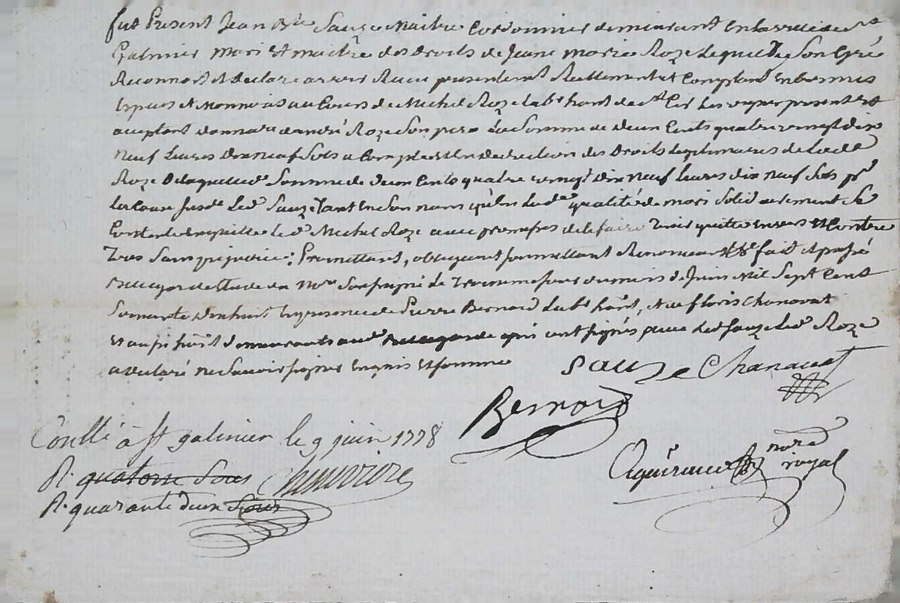 fut Present Jean Bte Sauze Maitre Cordonnier demeurant en la ville de St
Galmier mari et maitre des Droits de Jeane marie Roze Lequel de Son Gré
Reconnoit et declare avoir Recu presentemt Reellement et Comptant En bonnes
Espces et Monnois au Cours de Michel Roze labr hant de St present et
aceptant donnaire d'andré Roze Son pere La Somme de deux Cents quatre vingt dix
neuf Livres dix neuf Sols a Compte et En deduction des Droits Legitimaires de Lade
Roze De laquelle Somme de deux Cents quatre vingt dix neuf Livres dix neuf Sols
Led Sauze tant En Son nom qu'en lade qualité de mari Solidairement Se
Contente En quitte led Michel Roze avec promesse de le faire tenir quitte Envers et Contre
Tous Sans prejudice; Promettant, obligeant Soumettant Renonceant &c fait et passé
Etude du Nore Soussigné le mois de Juin Mil Sept Cent
Soixante dix huit En presence de Pierre Bernard labr hant, et Chanavat
aussi hant qui ont signés avec led Sauze Led Roze
a declaré ne Savoir signer Enquis et Sommé
Sauze Chanavat
Bernard
Conllé à St galmier le 9 juin 1778
R. quatorze Sous
R. quarante d'un Sous
nore
royal